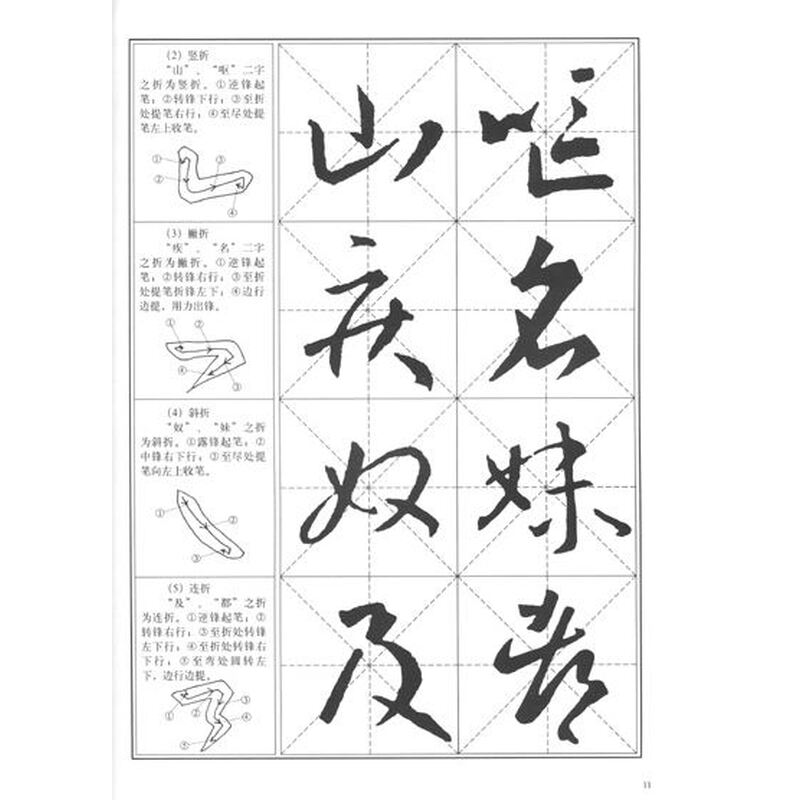 （2）竖折
“山”、“呕”二字
之折为竖折。①逆锋起
笔；②转锋下行；③至折
处提笔右行；④至尽处提
笔左上收笔。
①
③
②
④
山 呕
（3）撇折
“疾”、“名”二字
之折为撇折。①逆锋起
笔；②转锋右行；③至折
处提笔折锋左下；④边行
边提，用力出锋。
①
②
④
③
疾 名
（4）斜折
“奴”、“妹”之折
为斜折。①露锋起笔；②
中锋右下行；③至尽处提
笔向左上收笔。
①
②
③
奴 妹
（5）连折
“及”、“都”之折
为连折。①逆锋起笔；②
转锋右行；③至折处转锋
左下行；④至折处转锋右
下行；⑤至弯处圆转左
下，边行边提。
①
②
③
④
⑤
及 都
11